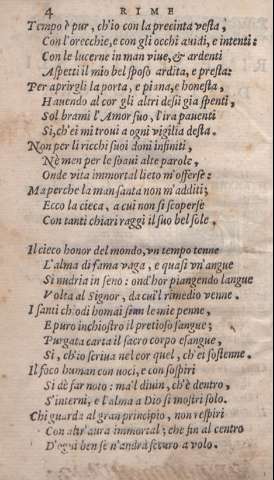 4 RIME
Tempo è pur, ch'io con la precinta vesta,
Con l'orecchie, e con gli occhi avidi, e intenti:
Con le lucerne in man vive, & ardenti
Aspetti il mio bel sposo ardita, e presta:
Per aprirgli la porta, e piana, e honesta,
Havendo al cor gli altri desij gia spenti,
Sol brami l'Amor suo, l'ira paventi
Si, ch'ei mi trovi a ogni vigilia desta.
Non per li ricchi suoi doni infiniti,
Nè men per le soavi alte parole,
Onde vita immortal lieto m'offerse:
Ma perche la man santa non m'additi;
Ecco la cieca, a cui non si scoperse
Con tanti chiari raggi il suo bel sole.
Il cieco honor del mondo, un tempo tenne
L'alma di fama vaga, e quasi un'angue
Si nudria in seno: ond'hor piangendo langue
Volta al Signor, da cui'l rimedio venne.
I santi chiodi homai sian le mie penne,
E puro inchiostro il pretioso sangue;
Purgata carta il sacro corpo esangue,
Si, ch'io scriva nel cor quel, ch'ei sostenne.
Il foco human con voci, e con sospiri
Si dè far noto: ma'l divin, ch'è dentro,
S'interni, e l'alma a Dio si mostri solo.
Chi guarda al gran principio, non respiri
Con altr'aura immortal; che fin al centro
D'ogni ben se n'andrà securo a volo.